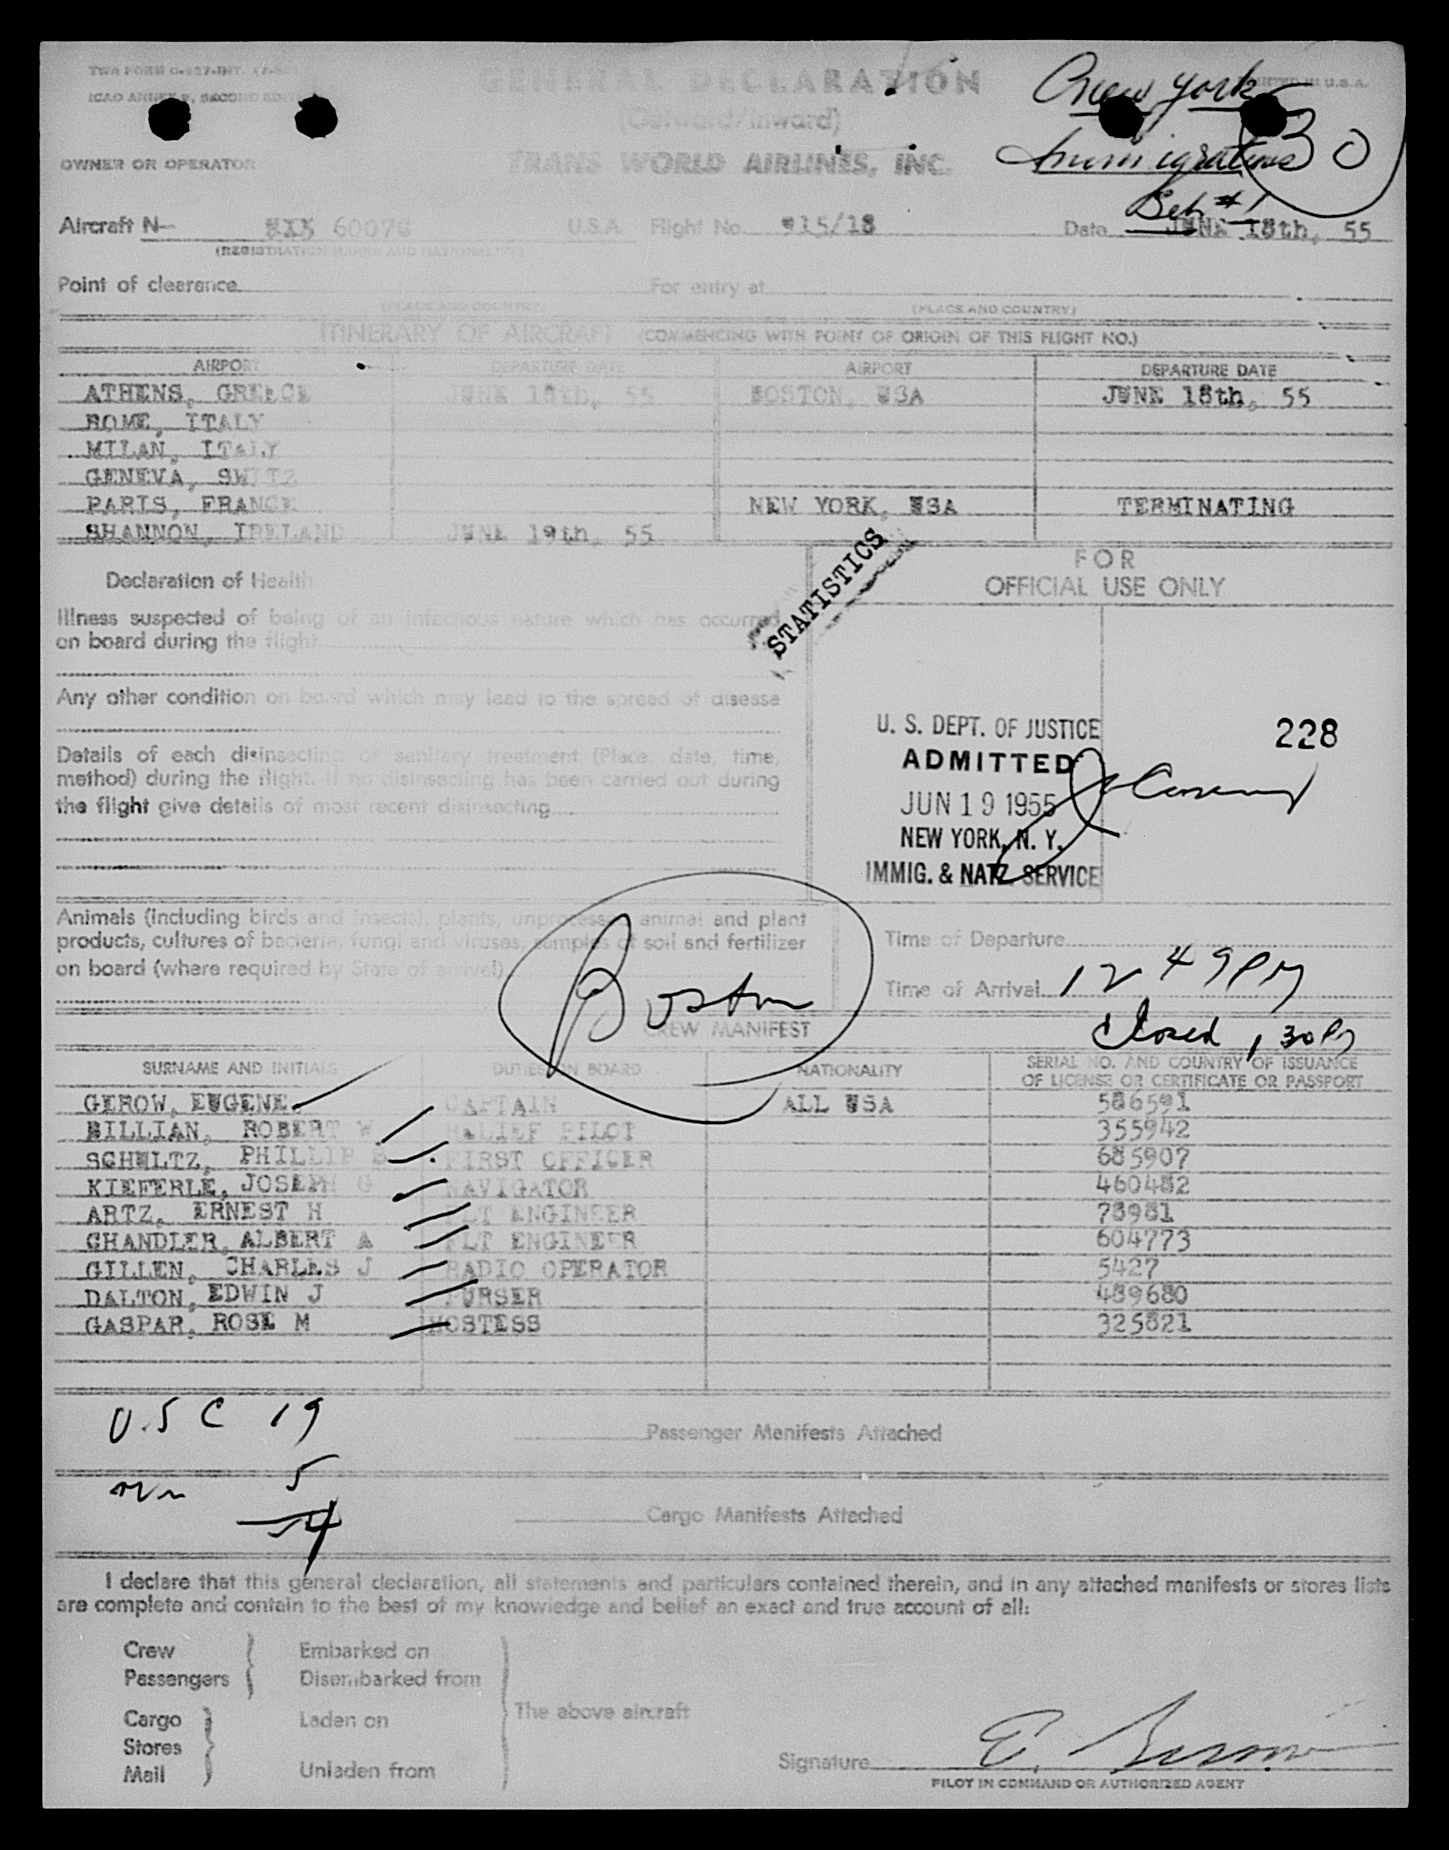 TWA FORM
GENERAL DECLARATION
PRINTED IN U.S.A.
ICAO ANNEX 9, SECOND EDITION
(Outward/Inward)
New York
Immigration
30
OWNER OR OPERATOR
TRANS WORLD AIRLINES, INC.
#1
Aircraft N- 6007C U.S.A. Flight No. 915/18 Date JUNE 18th, 55
(REGISTRATION MARKS AND NATIONALITY)
Point of clearance For entry at
(PLACE AND COUNTRY) (PLACE AND COUNTRY)
ITINERARY OF AIRCRAFT (COMMENCING WITH POINT OF ORIGIN OF THIS FLIGHT NO.)
AIRPORT DEPARTURE DATE AIRPORT DEPARTURE DATE
ATHENS, GREECE JUNE 18th, 55 BOSTON, USA JUNE 18th, 55
ROME, ITALY
MILAN, ITALY
GENEVA, SWITZ
PARIS, FRANCE NEW YORK, USA TERMINATING
SHANNON, IRELAND JUNE 19th, 55
STATISTICS
FOR
OFFICIAL USE ONLY
Declaration of Health
Illness suspected of being of an infectious nature which has occurred
on board during the flight
Any other condition on board which may lead to the spread of disease
Details of each disinsecting or sanitary treatment (Place, date, time,
method) during the flight. If no disinsecting has been carried out during
the flight give details of most recent disinsecting
U. S. DEPT. OF JUSTICE
ADMITTED
JUN 19 1955
NEW YORK, N. Y.
IMMIG. & NATZ SERVICE
228
Animals (including birds and insects), plants, unprocessed animal and plant
products, cultures of bacteria, fungi and viruses, samples of soil and fertilizer
on board (where required by State of arrival)
Time of Departure
Time of Arrival 12 49 PM
Closed 1 30 P
Boston
CREW MANIFEST
SURNAME AND INITIALS DUTIES ON BOARD NATIONALITY SERIAL NO. AND COUNTRY OF ISSUANCE
OF LICENSE OR CERTIFICATE OR PASSPORT
GEROW, EUGENE CAPTAIN ALL USA 586591
BILLIAN, ROBERT W RELIEF PILOT 355942
SCHULTZ, PHILLIP FIRST OFFICER 685907
KIEFERLE, JOSEPH G NAVIGATOR 460482
ARTZ, ERNEST H FLT ENGINEER 78981
CHANDLER, ALBERT A FLT ENGINEER 604773
GILLEN, CHARLES J RADIO OPERATOR 5427
DALTON, EDWIN J PURSER 489680
GASPAR, ROSE M HOSTESS 325821
U.S C 19
Passenger Manifests Attached
5
Cargo Manifests Attached
I declare that this general declaration, all statements and particulars contained therein, and in any attached manifests or stores lists
are complete and contain to the best of my knowledge and belief an exact and true account of all:
Crew Embarked on
Passengers Disembarked from
The above aircraft
Cargo Laden on
Stores
Mail Unladen from
Signature E. Gerow
PILOT IN COMMAND OR AUTHORIZED AGENT